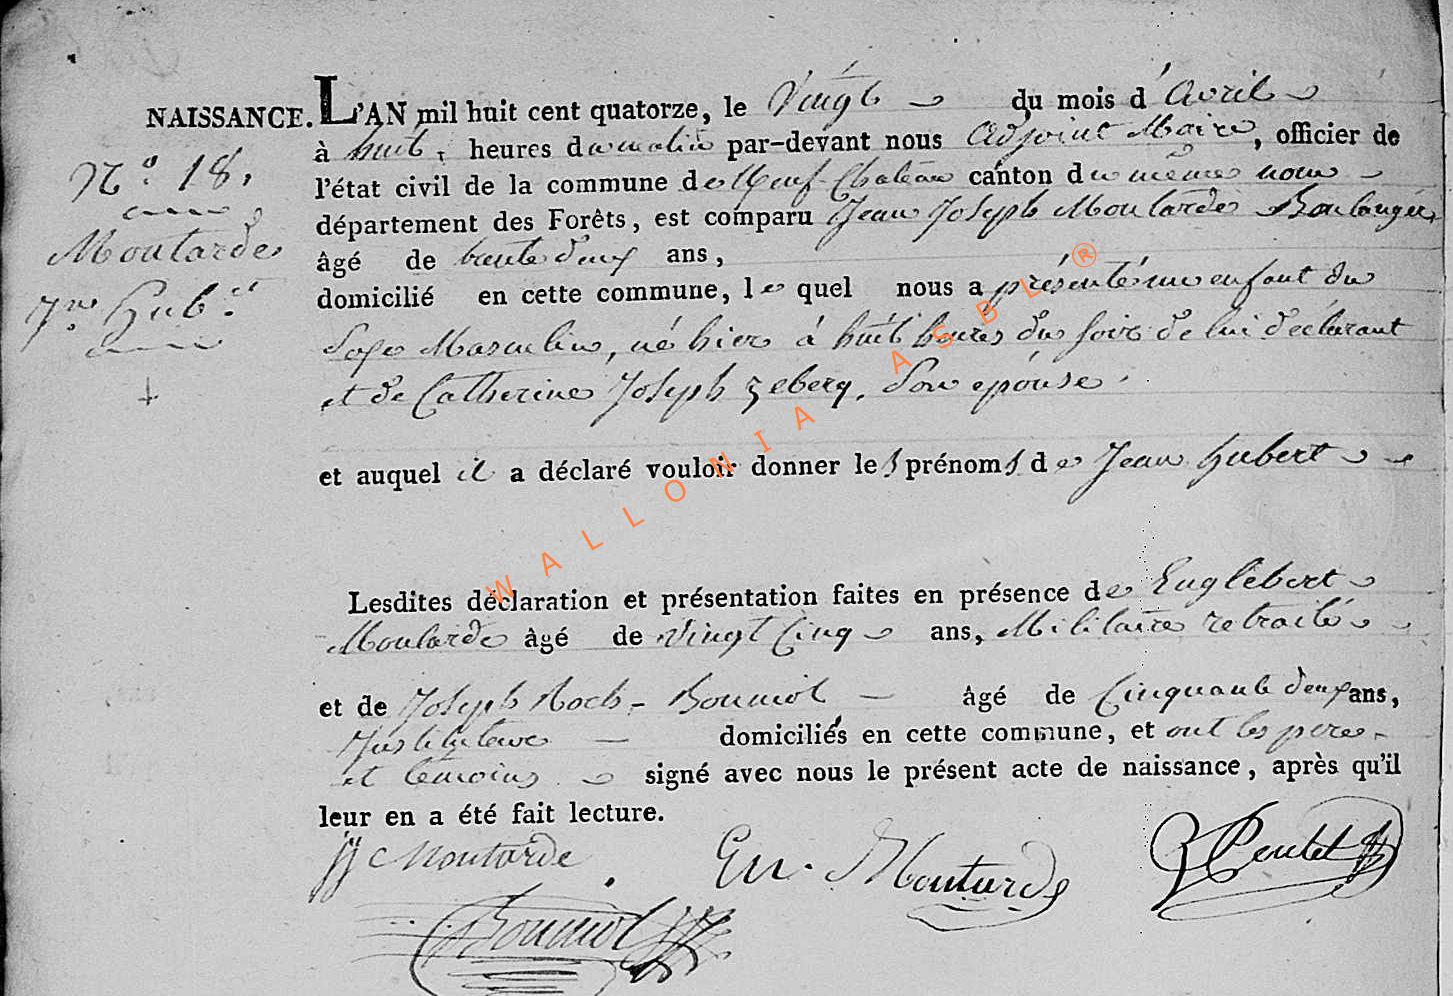 NAISSANCE. L'AN mil huit cent quatorze, le vingt du mois d'avril
N.° 18. à huit heures du matin par-devant nous adjoint Maire, officier de
l'état civil de la commune de Neuf-Chateau canton du même nom
département des Forêts, est comparu Jean Joseph Moutarde Boulanger,
Moutarde âgé de trente deux ans,
Jn. Hub.t domicilié en cette commune, le quel nous a présenté un enfant du
Sexe Masculin, né hier à huit heures du soir de lui déclarant
et de Catherine Joseph Zebery, Son epouse.
et auquel il a déclaré vouloir donner les prénoms de Jean hubert
Lesdites déclaration et présentation faites en présence de Englebert
Moutarde âgé de vingt Cinq ans, Militaire retraité
et de Joseph Roch-Boumol âgé de Cinquante deux ans,
Instituteur domiciliés en cette commune, et ont les pere
et temoins signé avec nous le présent acte de naissance, après qu'il
leur en a été fait lecture.
JJ Moutarde En. Moutarde
WALLONIA ASBL®